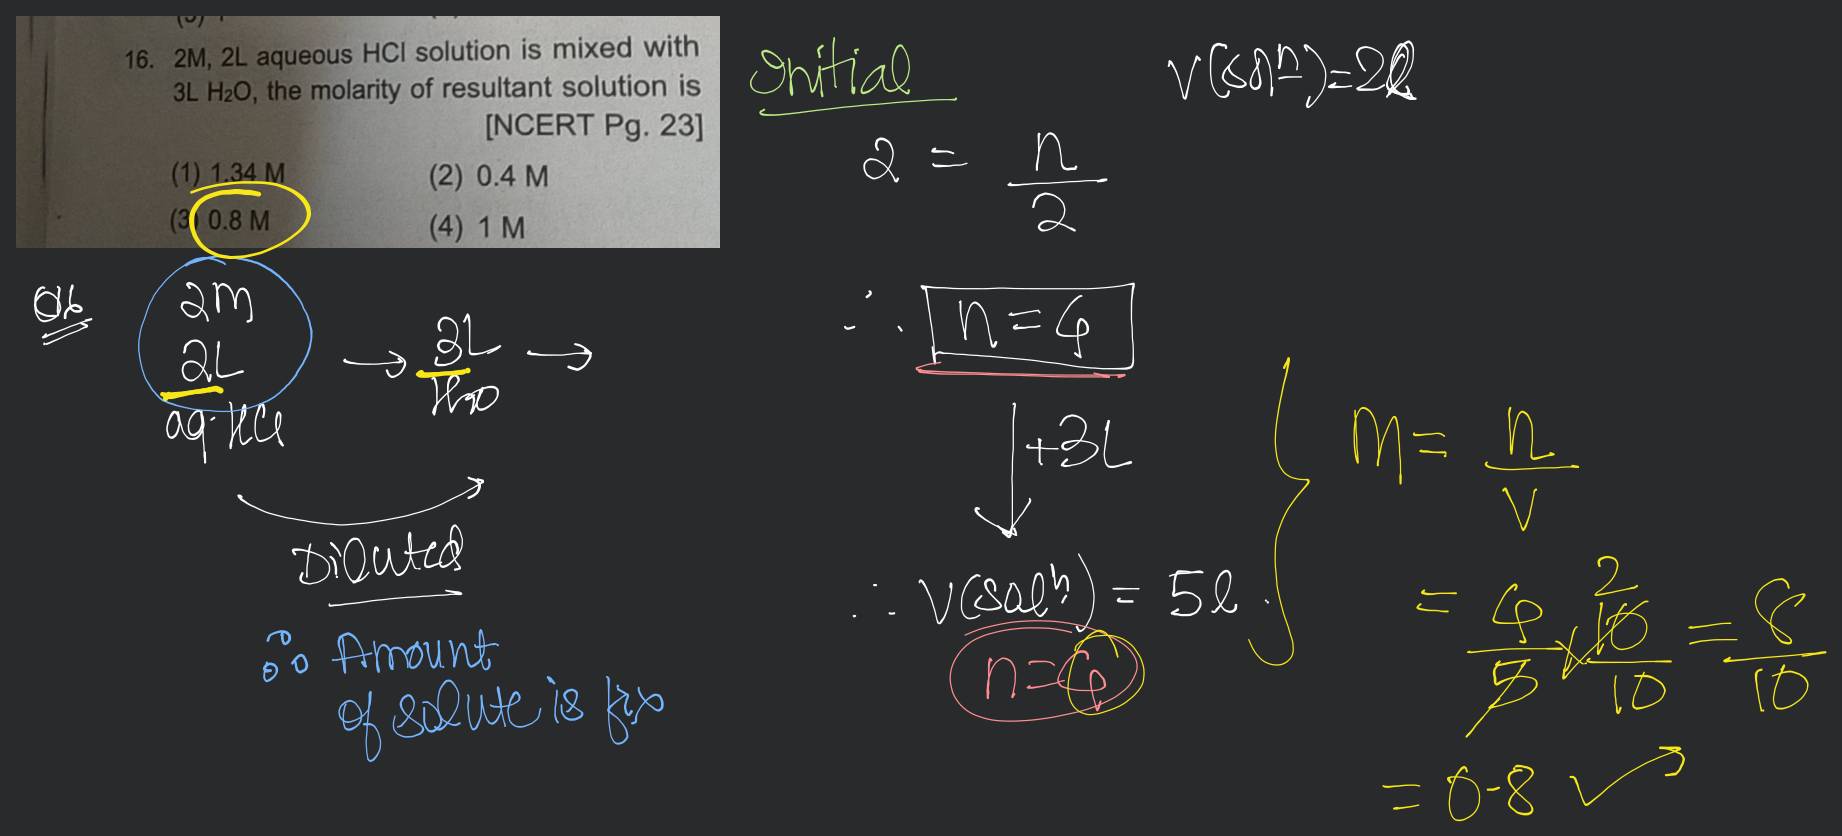 16. 2M, 2L aqueous HCl solution is mixed with
3L H₂O, the molarity of resultant solution is
[NCERT Pg. 23]
(1) 1.34 M (2) 0.4 M
(3) 0.8 M (4) 1 M
Initial
V(solⁿ)=2l
2 = n/2
∴ n=4
+3L
∴ V(solⁿ) = 5l
n=4
2M
2L
aq. HCl
→ 3L →
H₂O
Diluted
∴ Amount
of solute is fix
M = n/V
= 4/5 × 10/10 = 8/10
2
= 0.8 ✓